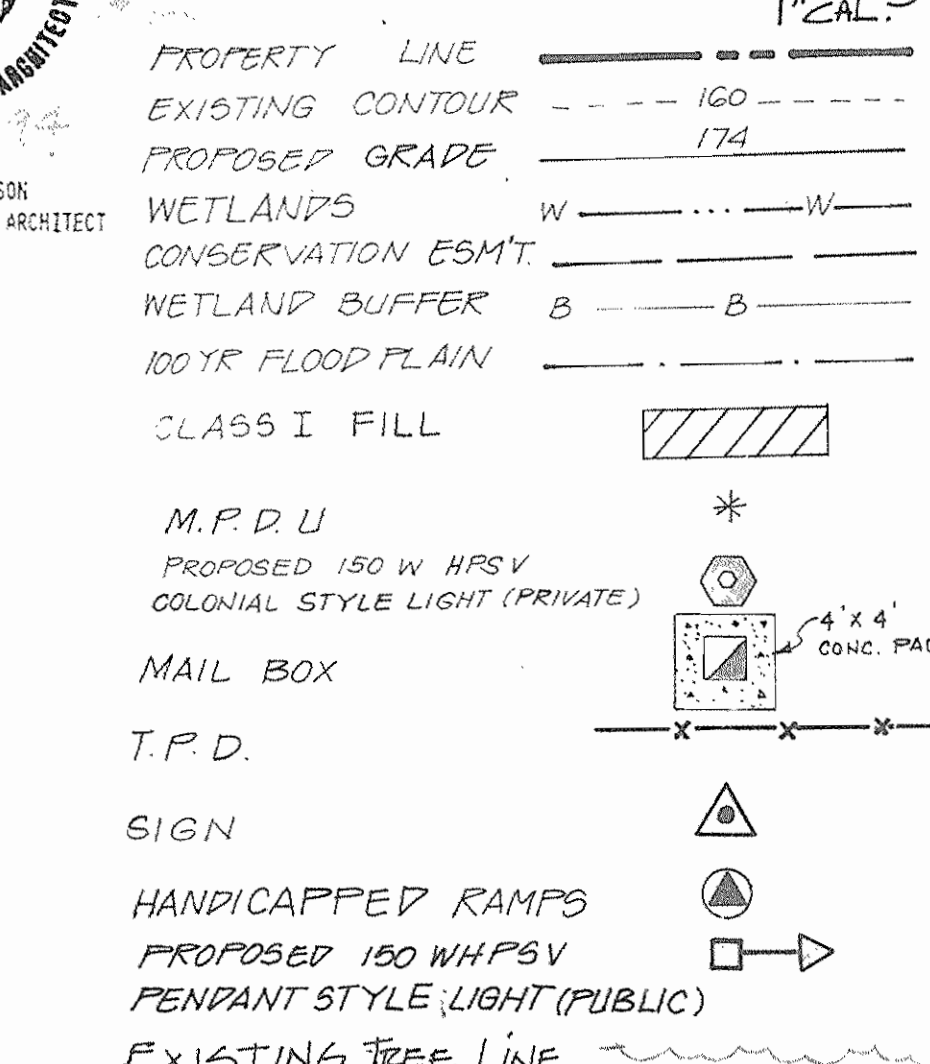 1" CAL.
PROPERTY LINE
EXISTING CONTOUR 160
PROPOSED GRADE 174
WETLANDS W W
ARCHITECT
CONSERVATION ESM'T.
WETLAND BUFFER B B
100 YR FLOOD PLAIN
CLASS I FILL
M.P.D.U
PROPOSED 150 W HPSV
COLONIAL STYLE LIGHT (PRIVATE)
4' X 4'
CONC. PAD
MAIL BOX
T.P.D.
SIGN
HANDICAPPED RAMPS
PROPOSED 150 WHPSV
PENDANT STYLE LIGHT (PUBLIC)
EXISTING TREE LINE